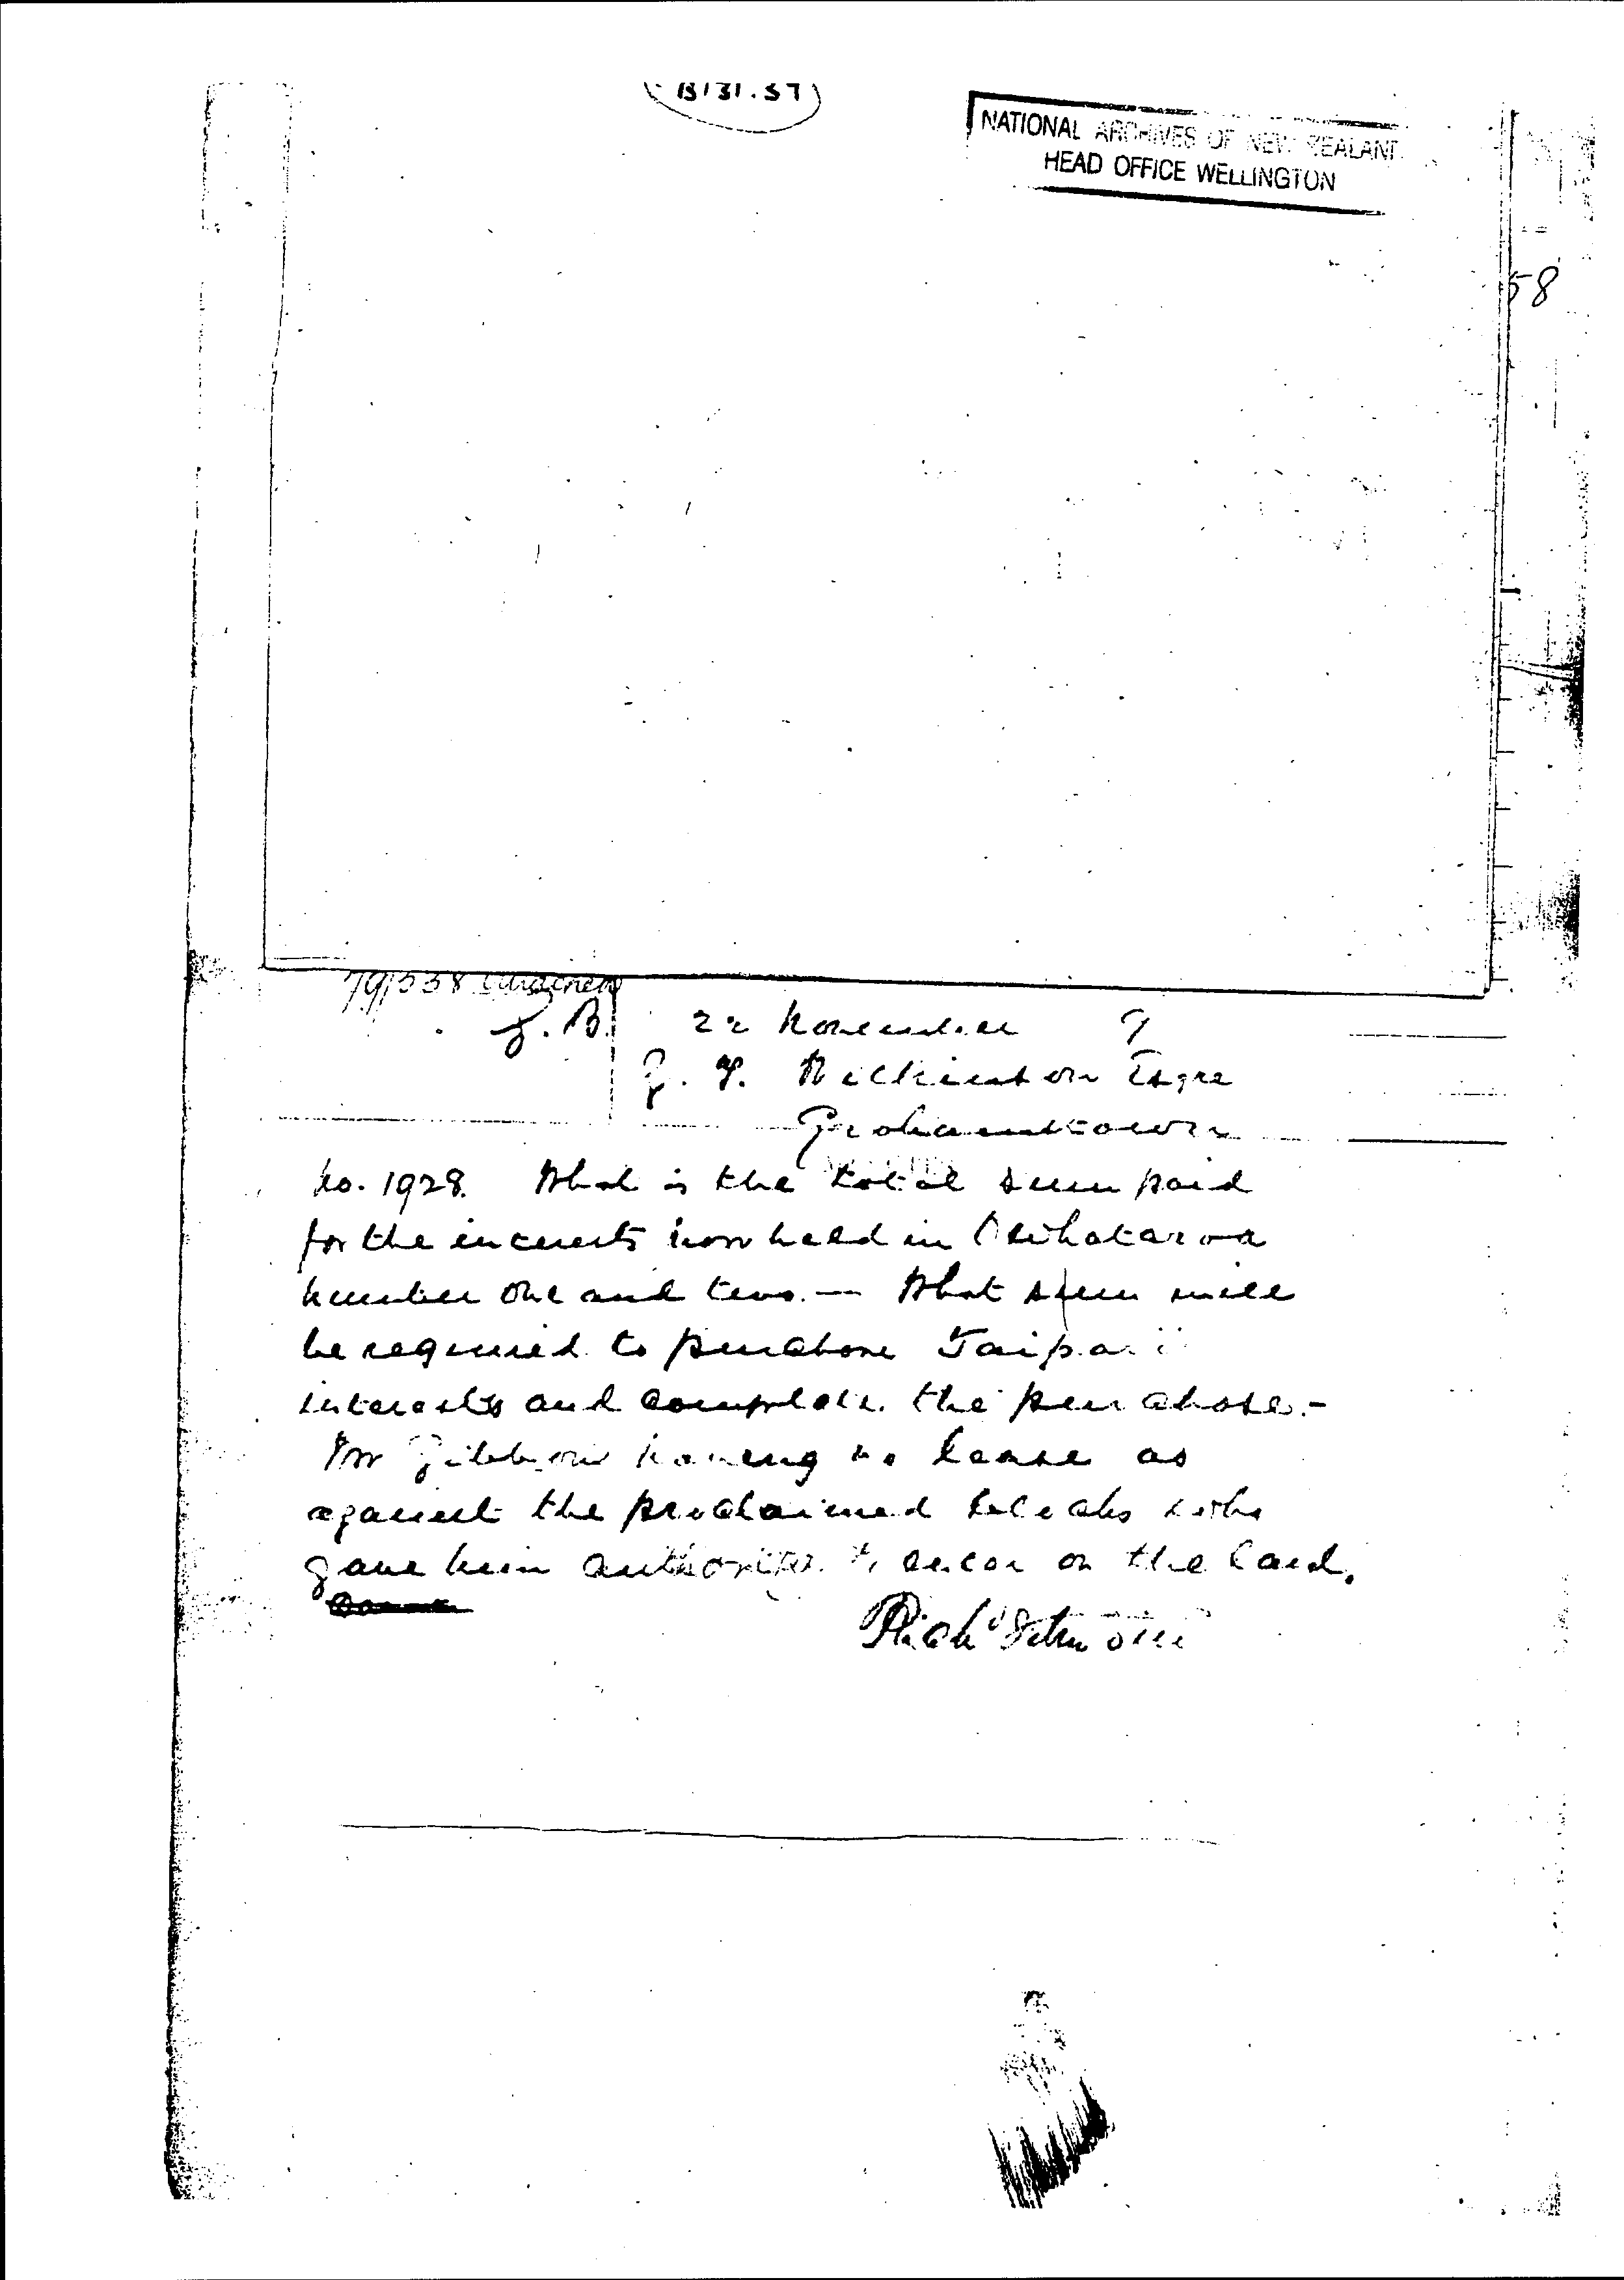 B131.57
NATIONAL ARCHIVES OF NEW ZEALAND
HEAD OFFICE WELLINGTON
58
22 November 9
G. T. Wilkinson Esqre
Grahamstown
No. 1928. What is the total sum paid
for the interests now held in
number one and two. — What sum will
be required to purchase Taipari
interests and complete the purchase.-
Mr Gibbons having no lease as
against the proclaimed blocks who
gave him authority to enter on the land.